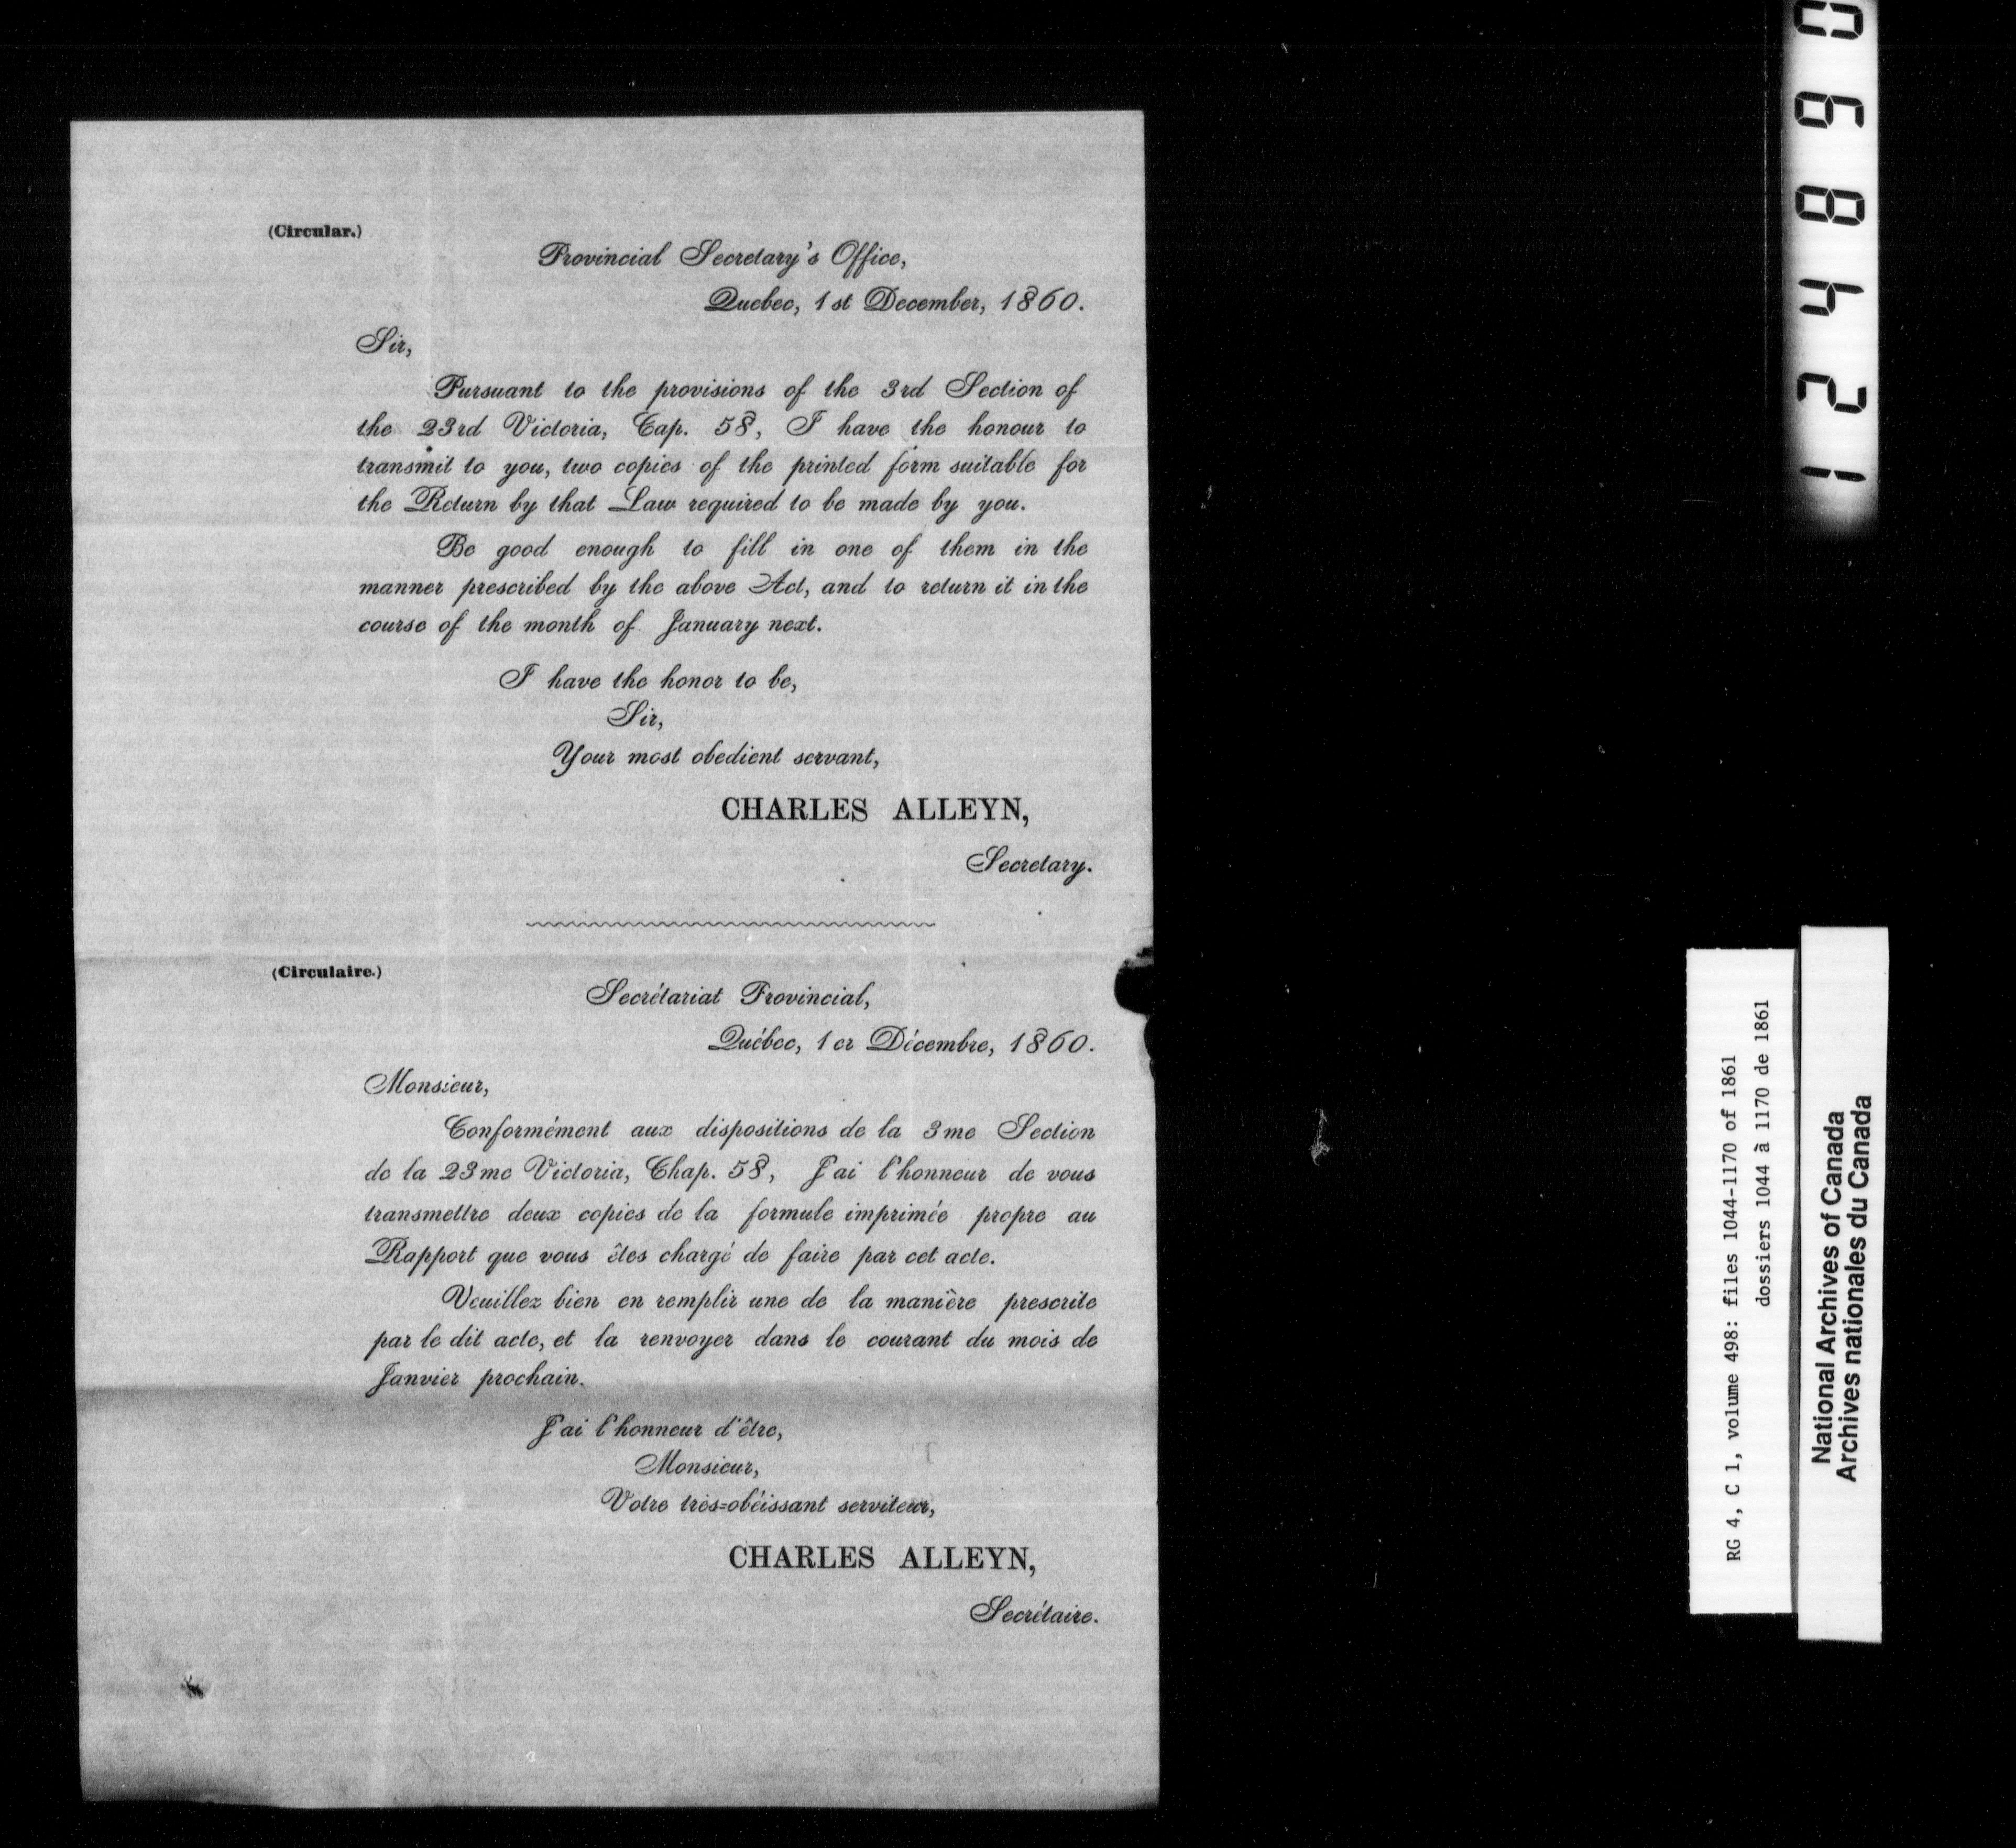 (Circular.)
Provincial Secretary's Office,
Quebec, 1st December, 1860.
Sir,
Pursuant to the provisions of the 3rd Section of
the 23rd Victoria, Cap. 58, I have the honour to
transmit to you, two copies of the printed form suitable for
the Return by that Law required to be made by you.
Be good enough to fill in one of them in the
manner prescribed by the above Act, and to return it in the
course of the month of January next.
I have the honor to be,
Sir,
Your most obedient servant,
CHARLES ALLEYN,
Secretary.
(Circulaire.)
Secrétariat Provincial,
Québec, 1er Décembre, 1860.
Monsieur,
Conformément aux dispositions de la 3me Section
de la 23me Victoria, Chap. 58, J'ai l'honneur de vous
transmettre deux copies de la formule imprimée propre au
Rapport que vous êtes chargé de faire par cet acte.
Veuillez bien en remplir une de la manière prescrite
par le dit acte, et la renvoyer dans le courant du mois de
Janvier prochain.
J'ai l'honneur d'être,
Monsieur,
Votre très=obéissant serviteur,
CHARLES ALLEYN,
Secrétaire.
124890
RG 4, C 1, volume 498: files 1044-1170 of 1861
dossiers 1044 à 1170 de 1861
National Archives of Canada
Archives nationales du Canada